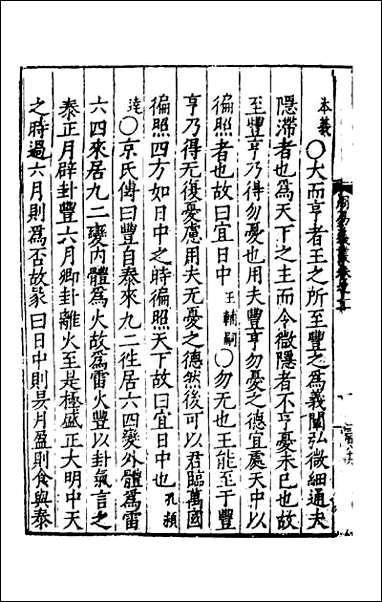 本義〇大而亨者王之所至豐之爲義闡弘微細通夫
隱滯者也爲天下之主而令微隱者不亨憂未已也故
至豐亨乃得勿憂也用夫豐亨勿憂之德宜處天中以
徧照者也故曰宜日中王輔嗣〇勿无也王能至于豐
亨乃得无復憂慮用夫无憂之德然後可以君臨萬國
徧照四方如日中之時徧照天下故曰宜日中也孔穎
達〇京氏傳曰豐自泰來九二徃居六四變外體爲雷
六四來居九二變内體爲火故爲雷火豐以卦氣言之
泰正月辟卦豐六月卿卦離火至是極盛正大明中天
之時過六月則爲否故彖曰日中則昃月盈則食與泰